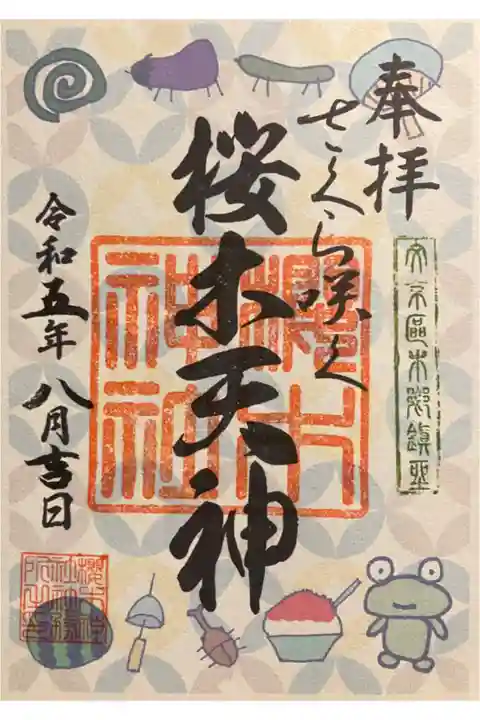 奉拝
文京區本郷鎮座
さくら咲く
桜木天神
櫻木
神社
令和五年 八月吉日
櫻木神
社神璽